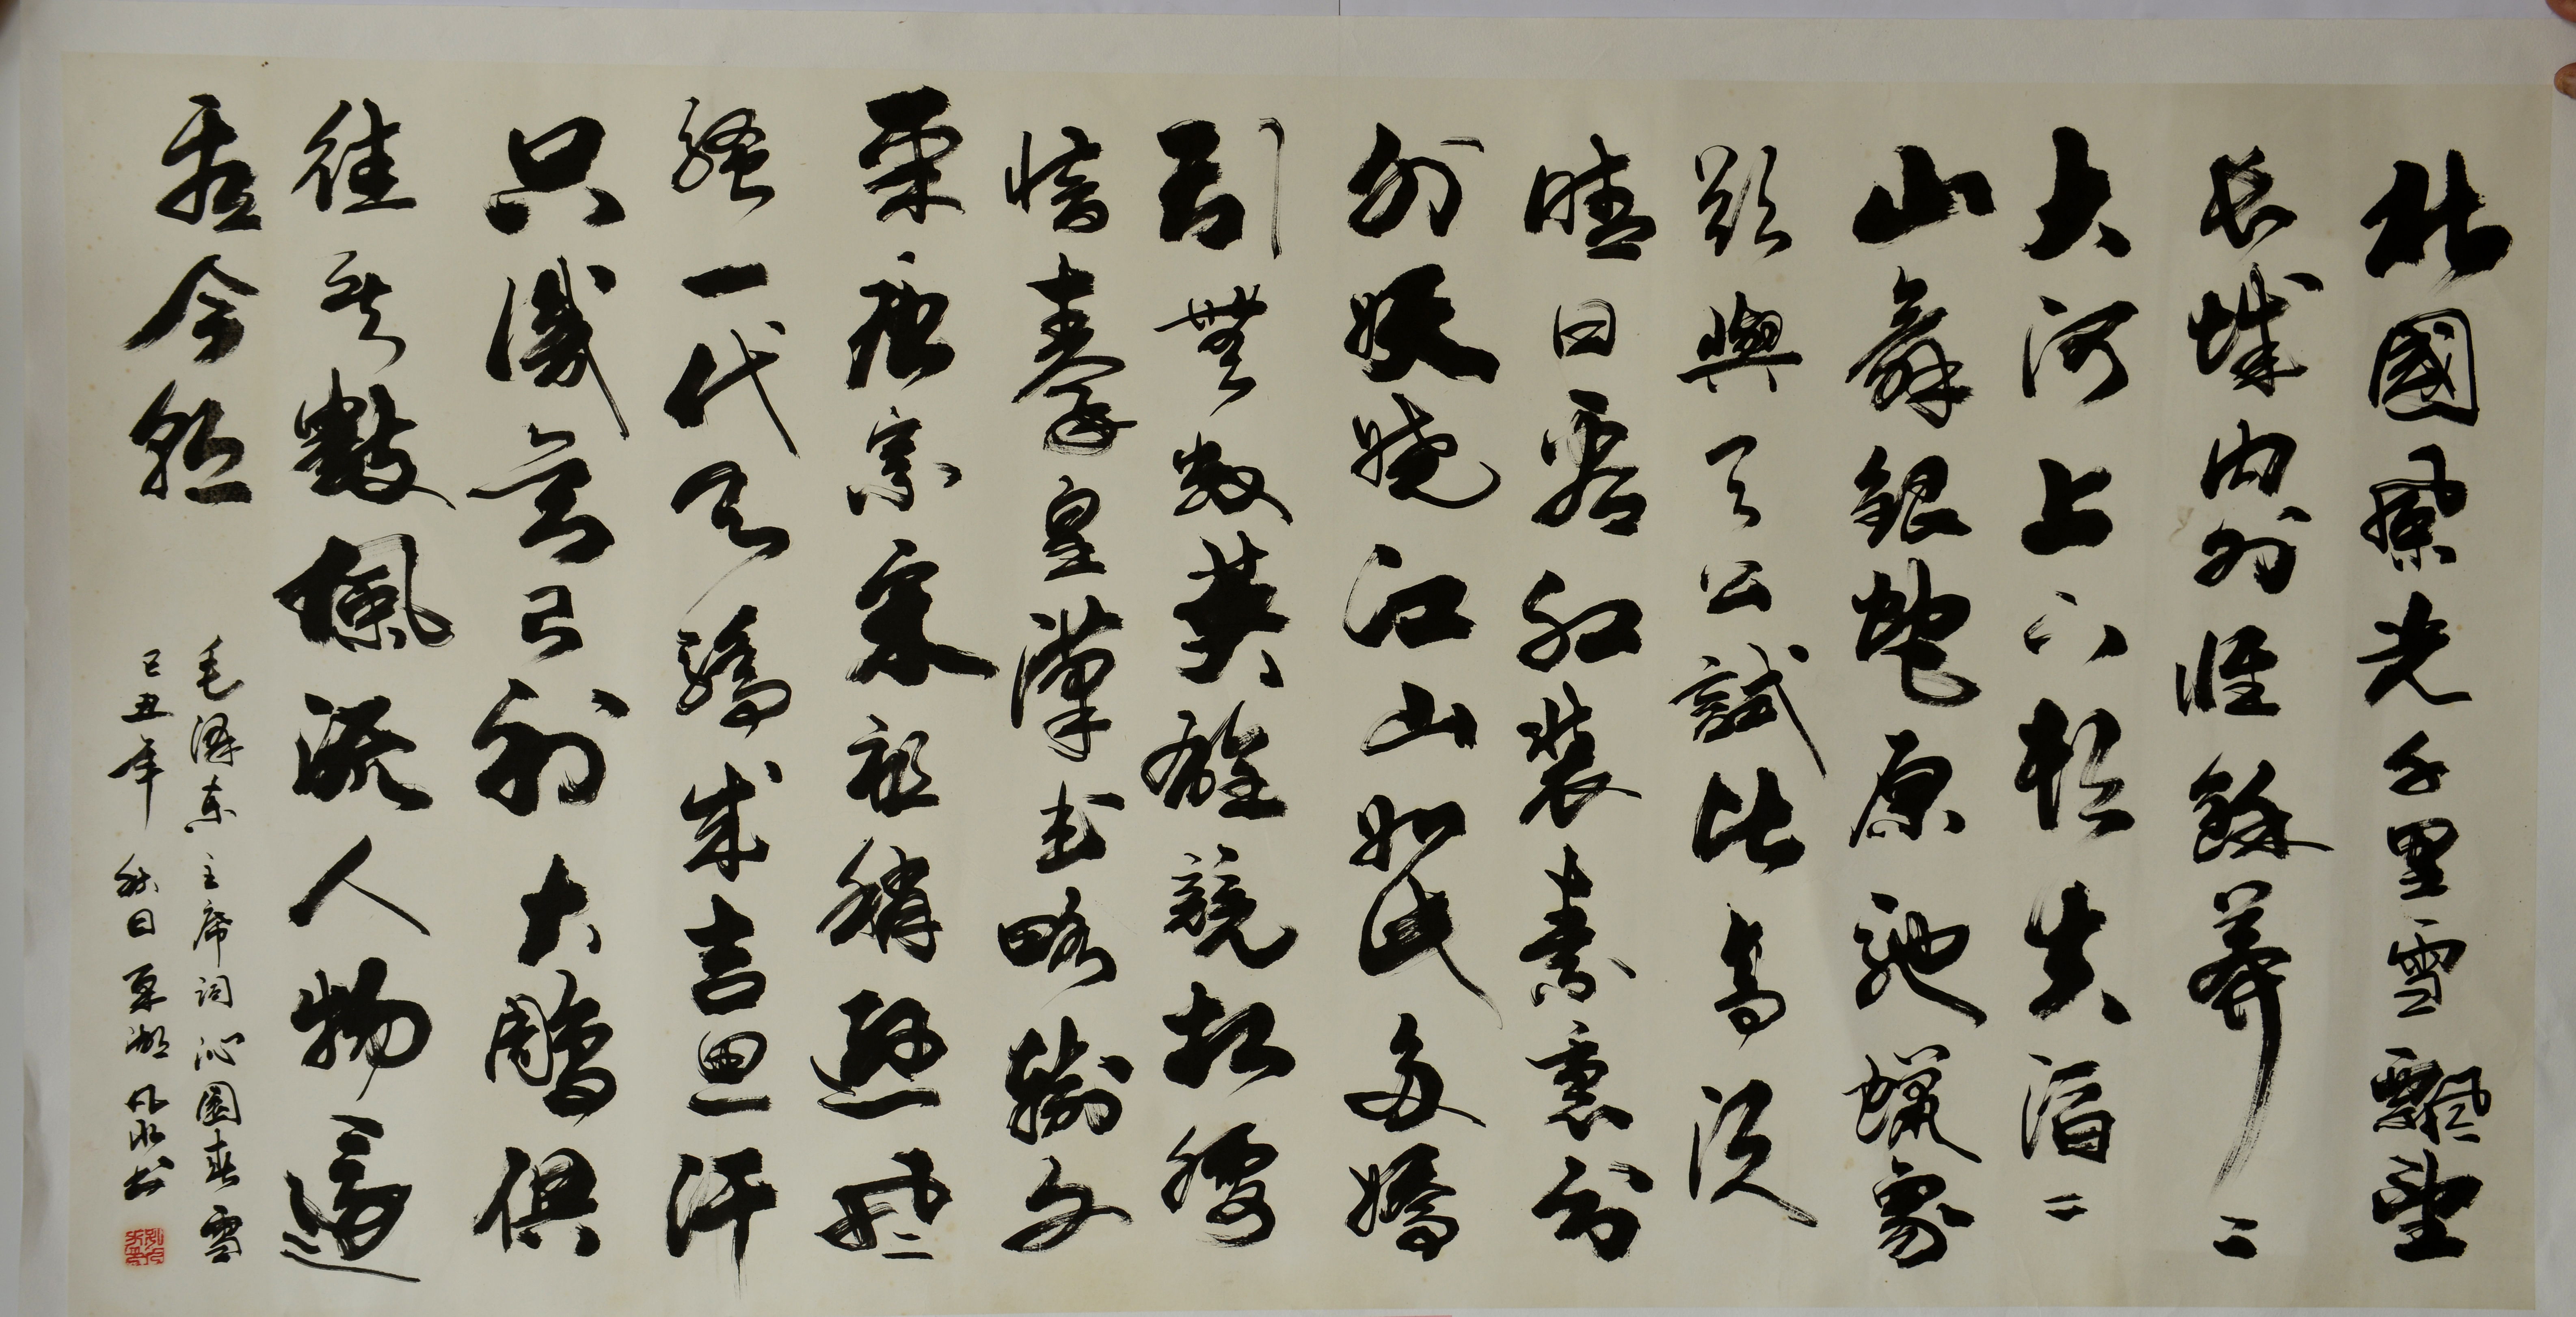 北國風光千里雪飄望
长城内外惟餘莽々
大河上下頓失滔々
山舞銀蛇原馳蠟象
欲與天公試比高須
晴日看紅裝素裹分
外妖嬈江山如此多嬌
引無數英雄競折腰
惜秦皇漢武略輸文
采唐宗宋祖稍遜風
騷一代天驕成吉思汗
只識彎弓射大鵰俱
往矣數風流人物還
看今朝
毛澤東主席詞沁園春雪
己丑年秋日 书